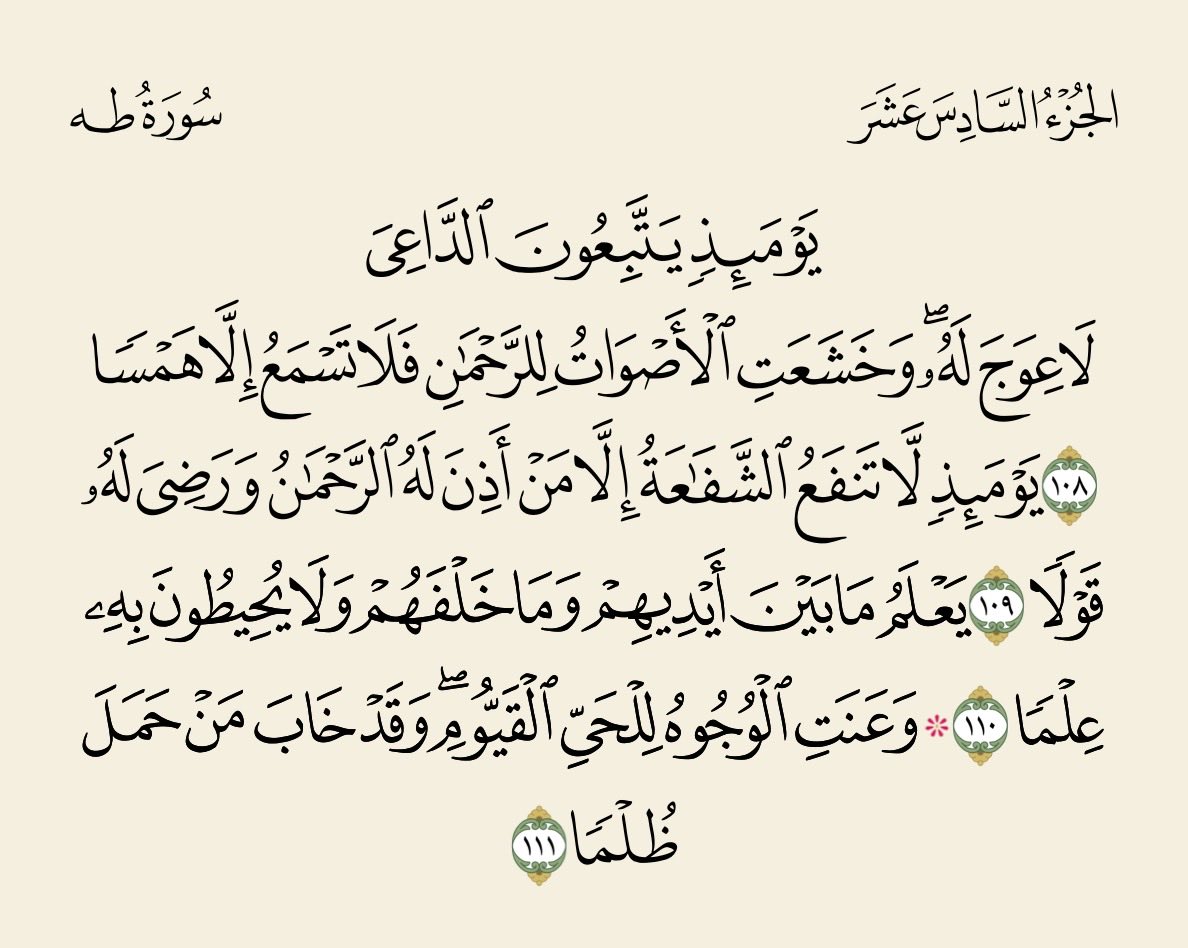 الجُزْءُ السَّادِسَ عَشَرَ
سُورَةُ طه
يَوْمَئِذٍ يَتَّبِعُونَ ٱلدَّاعِىَ
لَا عِوَجَ لَهُۥ ۖ وَخَشَعَتِ ٱلْأَصْوَاتُ لِلرَّحْمَٰنِ فَلَا تَسْمَعُ إِلَّا هَمْسًا
١٠٨ يَوْمَئِذٍ لَّا تَنفَعُ ٱلشَّفَٰعَةُ إِلَّا مَنْ أَذِنَ لَهُ ٱلرَّحْمَٰنُ وَرَضِىَ لَهُۥ
قَوْلًا ١٠٩ يَعْلَمُ مَا بَيْنَ أَيْدِيهِمْ وَمَا خَلْفَهُمْ وَلَا يُحِيطُونَ بِهِۦ
عِلْمًا ١١٠ * وَعَنَتِ ٱلْوُجُوهُ لِلْحَىِّ ٱلْقَيُّومِ ۖ وَقَدْ خَابَ مَنْ حَمَلَ
ظُلْمًا ١١١